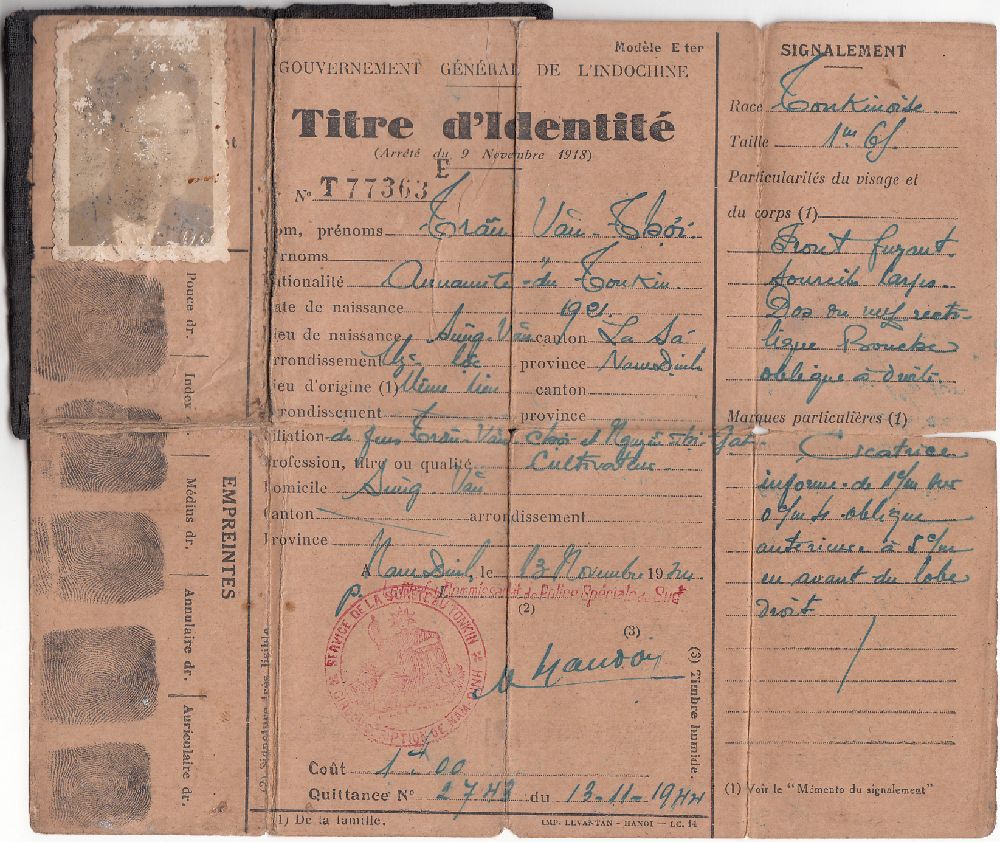 Modèle E ter
GOUVERNEMENT GÉNÉRAL DE L'INDOCHINE
Titre d'Identité
(Arrêté du 9 Novembre 1918)
E
N° T77363
om, prénoms Trần Văn Thới
rnoms "
ationalité Annamite du Tonkin
ate de naissance 1921
ieu de naissance canton La Sá
rrondissement province Nam Định
ieu d'origine (1) Même lieu canton
rrondissement province
iliation de feu Trần Văn et Nguyễn thị
rofession, titre ou qualité Cultivateur
omicile
Canton arrondissement
Province
A Nam Định, le 13 Novembre 1944
P. Commissariat de Police Spéciale
(2)
(3)
SERVICE DE LA SÛRETÉ AU TONKIN
Coût 1$00
Quittance N° 2743 du 13-11-1944
(1) De la famille.
IMP. LEVAN-TAN - HANOI — LC. 14
(2) Signature très lisible.
(3) Timbre humide.
EMPREINTES
Pouce dr.
Index
Médius dr.
Annulaire dr.
Auriculaire dr.
SIGNALEMENT
Race Tonkinoise
Taille 1m 65
Particularités du visage et
du corps (1)
Front fuyant
sourcils larges
Dos du nez recti-
ligne Bouche
oblique à droite
Marques particulières (1)
Cicatrice
informe de 1c/m sur
oblique
antérieure à 5c/m
en avant du lobe
droit
(1) Voir le "Mémento du signalement"